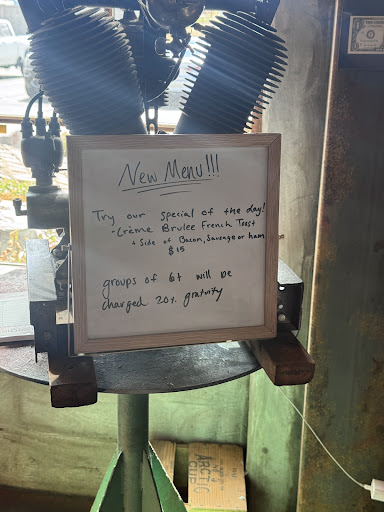 New Menu!!!
Try our special of the day!
-Crème Brulee French Toast
+ Side of Bacon, Sausage or ham
$15
groups of 6+ will be
charged 20% gratuity
ARCTIC